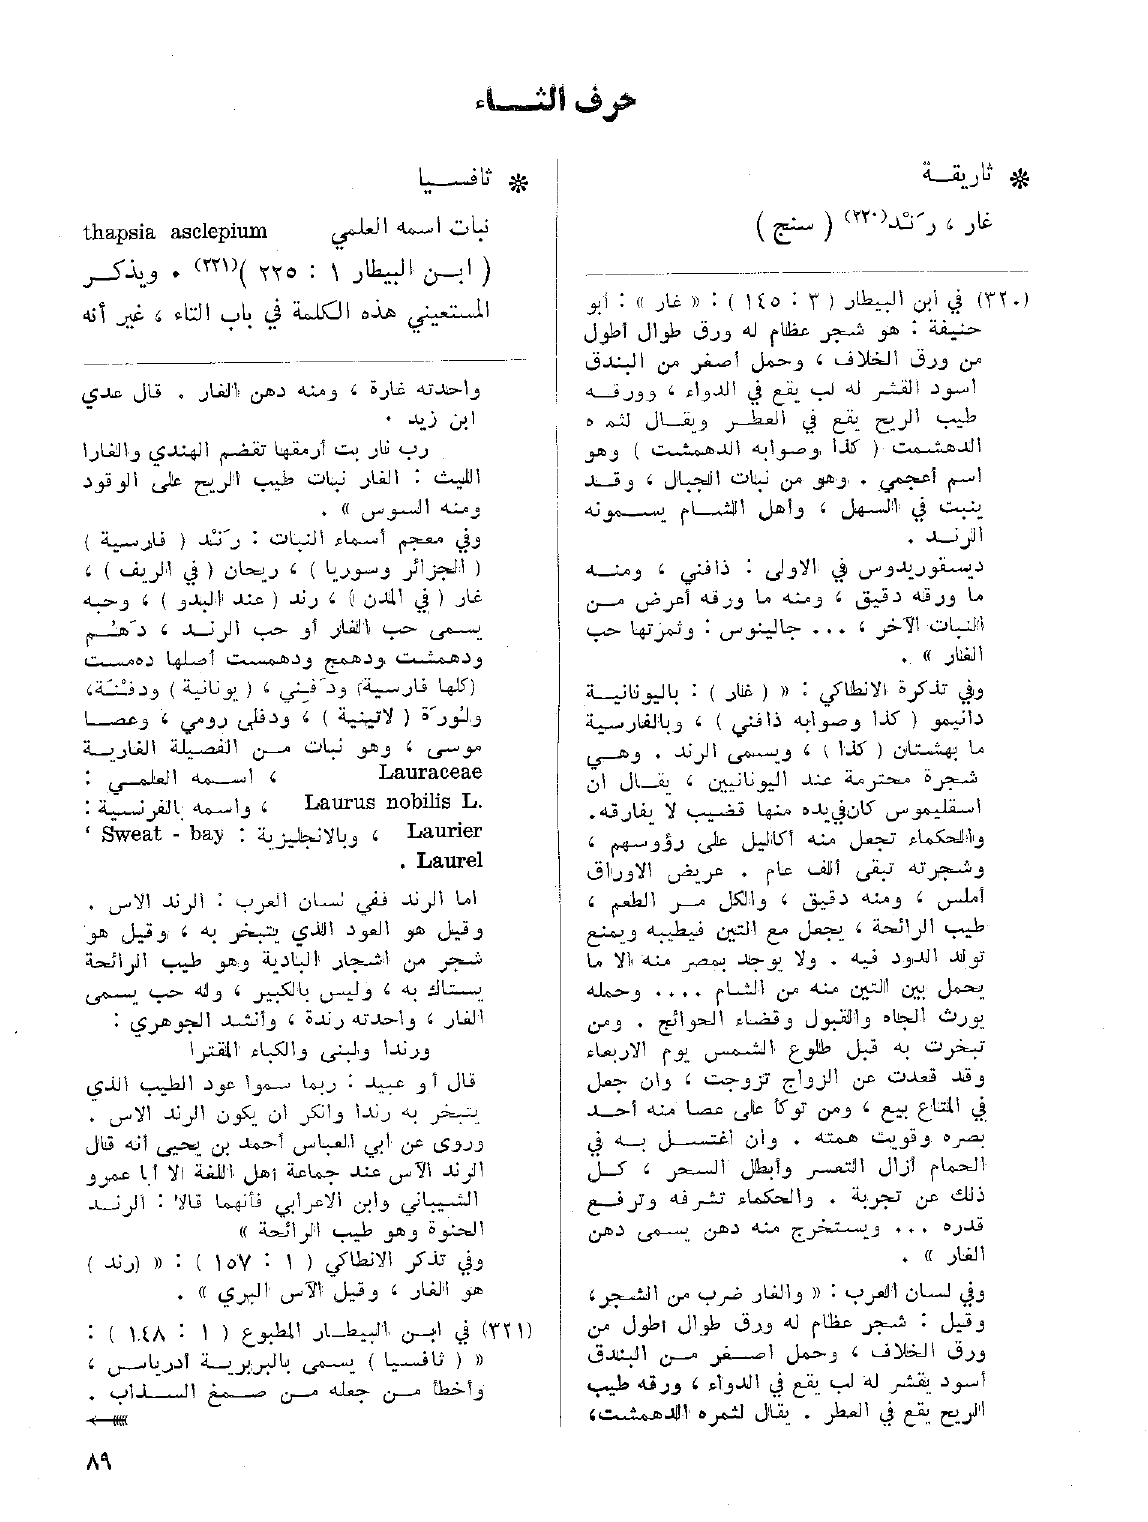 حرف الثـــاء
❋ ثاريقــة
غار ، رَنْد(٣٢٠) ( سنج )
(٣٢٠) في ابن البيطار ( ٣ : ١٤٥ ) : « غار » : أبو
حنيفة : هو شجر عظام له ورق طوال أطول
من ورق الخلاف ، وحمل أصغر من البندق
أسود القشر له لب يقع في الدواء ، وورقـه
طيب الريح يقع في العطـر ويقـال لثمره
الدهشمت ( كذا وصوابه الدهمشت ) وهو
اسم أعجمي . وهو من نبات الجبال ، وقـد
ينبت في السهل ، وأهل الشـام يسـمونه
الرنـد .
ديسقوريدوس في الاولى : ذافني ، ومنـه
ما ورقه دقيق ، ومنه ما ورقه أعرض مـن
النبات الآخر ، ... جالينوس : وثمرتها حب
الغار » .
وفي تذكرة الانطاكي : « ( غار ) : باليونانيـة
دانيمو ( كذا وصوابه ذافني ) ، وبالفارسية
ما بهشتان ( كذا ) ، ويسمى الرند . وهـي
شجرة محترمة عند اليونانيين ، يقـال ان
اسقليموس كان في يده منها قضيب لا يفارقه.
والحكماء تجعل منه أكاليل على رؤوسهم ،
وشجرته تبقى ألف عام . عريض الاوراق
أملس ، ومنه دقيق ، والكل مـر الطعم ،
طيب الرائحة ، يجعل مع التين فيطيبه ويمنع
تولد الدود فيه . ولا يوجد بمصر منه الا ما
يحمل بين التين منه من الشـام .... وحمله
يورث الجاه والقبول وقضاء الحوائج . ومن
تبخرت به قبل طلوع الشمس يوم الاربعاء
وقد قعدت عن الزواج تزوجت ، وان جعل
في المتاع بيع ، ومن توكأ على عصا منه أحـد
بصره وقويت همته . وان اغتسـل بـه في
الحمام أزال التعسر وأبطل السحر ، كـل
ذلك عن تجربة . والحكماء تشرفه وترفع
قدره ... ويستخرج منه دهن يسمى دهن
الغار » .
وفي لسان العرب : « والغار ضرب من الشجر،
وقيل : شجر عظام له ورق طوال أطول من
ورق الخلاف ، وحمل أصـغر مـن البندق
أسود يقشر له لب يقع في الدواء ، ورقه طيب
الريح يقع في العطر . يقال لثمره الدهمشت،
❋ ثافسـيا
نبات اسمه العلمي thapsia asclepium
( ابـن البيطار ١ : ٢٢٥ )(٣٢١) . ويذكـر
المستعيني هذه الكلمة في باب التاء ، غير أنه
واحدته غارة ، ومنه دهن الغار . قال عدي
ابن زيد .
رب نار بت أرمقها تقضم الهندي والغارا
الليث : الغار نبات طيب الريح على الوقود
ومنه السوس » .
وفي معجم أسماء النبات : رَنْد ( فارسية )
( الجزائر وسوريا ) ، ريحان ( في الريف ) ،
غار ( في المدن ) ، رند ( عند البدو ) ، وحبه
يسمى حب الغار أو حب الرنـد ، دَهْـم
ودهمشت ودهمج ودهمست أصلها ده مست
(كلها فارسية) ودَفْني ، ( يونانية ) ودفْنَة،
ولورَة ( لاتينية ) ، ودفلى رومي ، وعصـا
موسى ، وهو نبات مـن الفصيلة الغاريـة
Lauraceae ، اسـمه العلمـي :
Laurus nobilis L. ، واسمه بالفرنسـية :
Laurier ، وبالانجليزية : Sweat - bay ،
Laurel .
اما الرند ففي لسان العرب : الرند الآس .
وقيل هو العود الذي يتبخر به ، وقيل هو
شجر من أشجار البادية وهو طيب الرائحة
يستاك به ، وليس بالكبير ، وله حب يسمى
الغار ، واحدته رندة ، وأنشد الجوهري :
ورندا ولبنى والكباء المقترا
قال أو عبيد : ربما سموا عود الطيب الذي
يتبخر به رندا وانكر ان يكون الرند الآس .
وروي عن أبي العباس أحمد بن يحيى أنه قال
الرند الآس عند جماعة أهل اللغة الا أبا عمرو
الشيباني وابن الاعرابي فأنهما قالا : الرنـد
الحنوة وهو طيب الرائحة »
وفي تذكر الانطاكي ( ١ : ١٥٧ ) : « (رند )
هو الغار ، وقيل الآس البري » .
(٣٢١) في ابـن البيطـار المطبوع ( ١ : ١٤٨ ) :
« ( ثافسيا ) يسمى بالبربريـة أدرياس ،
وأخطأ مـن جعله مـن صـمغ السـذاب .
٨٩